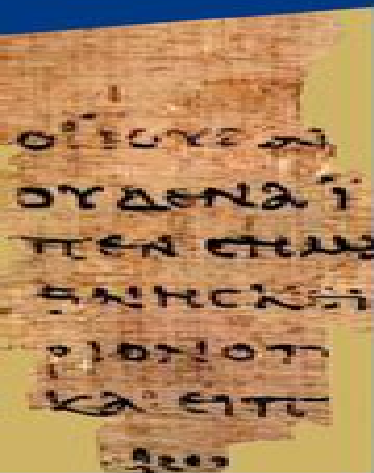 ΟΙ ΙΟΥΔΑΙ
ΟΥΔΕΝΑ Ϊ
ΠΕΝ CΗΜΑ
ΘΝΗCΚΕΙ
ΡΙΟΝ Ο Π
ΚΑΙ ΕΙΠ